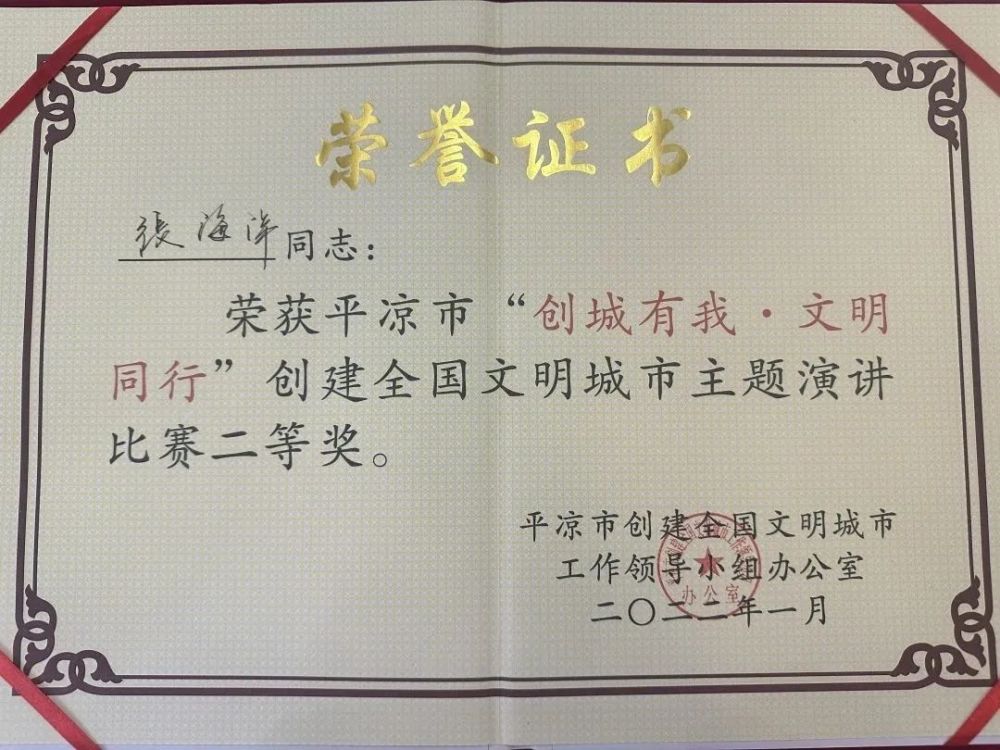 荣誉证书
張海洋同志：
荣获平凉市“创城有我·文明
同行”创建全国文明城市主题演讲
比赛二等奖。
平凉市创建全国文明城市
工作领导小组办公室
二〇二二年一月
办公室